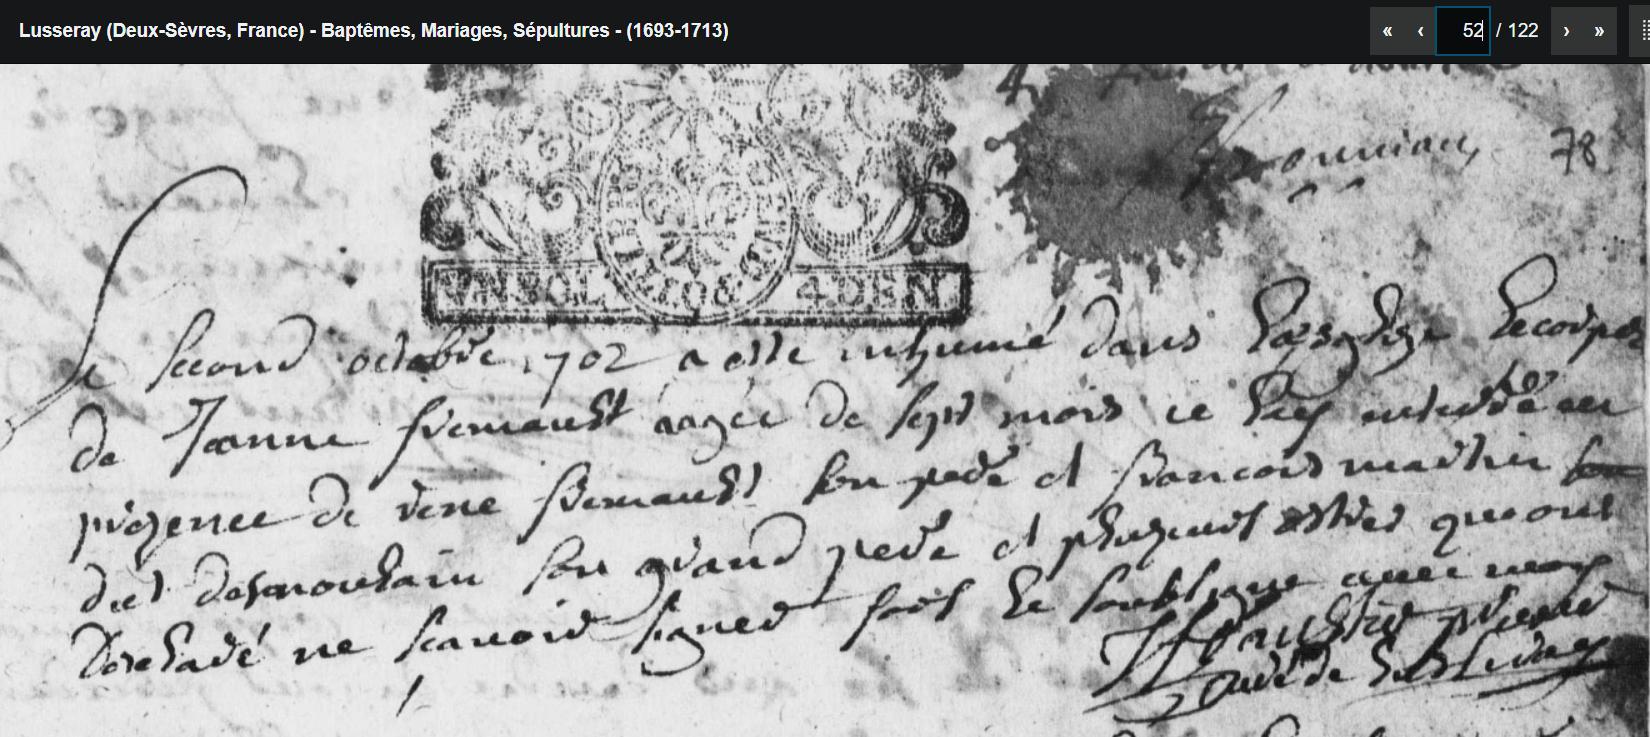 Lusseray (Deux-Sèvres, France) - Baptêmes, Mariages, Sépultures - (1693-1713)
« ‹ 52 / 122 › »
78
VN SOL 4 DEN
Le second octobre 1702 a este inhumé dans Leglize Le corps
de Jeanne fremault aagée de sept mois ce fut
prezence de rene fremault son pere et francois martin
dict desmoulain son grand pere et pluzieurs autres qui ont
Declaré ne scavoir signer fors Le soubsigne avec moy
Curé de